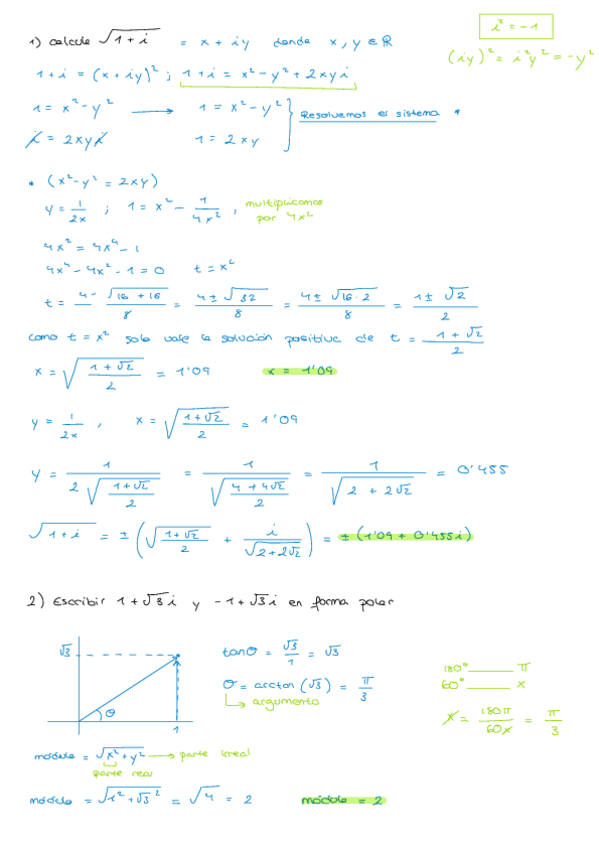 1) calcule √(1+i) = x + iy donde x, y ∈ ℝ
i² = -1
(iy)² = i²y² = -y²
1+i = (x+iy)² ; 1+i = x² - y² + 2xyi
1 = x² - y² → 1 = x² - y²
i = 2xyi 1 = 2xy } Resolvemos el sistema *
* (x² - y² = 2xy)
y = 1/2x ; 1 = x² - 1/4x² , multiplicamos por 4x²
4x² = 4x⁴ - 1
4x⁴ - 4x² - 1 = 0 t = x²
t = 4 - √(16 + 16)/8 = 4 ± √32/8 = 4 ± √(16·2)/8 = 1 ± √2/2
como t = x² solo vale la solución positiva de t = 1 + √2/2
x = √(1+√2/2) = 1'09 x = 1'09
y = 1/2x , x = √(1+√2/2) = 1'09
y = 1/(2√(1+√2/2)) = 1/√(4+4√2/2) = 1/√(2+2√2) = 0'455
√(1+i) = ± (√(1+√2/2) + i/√(2+2√2)) = ± (1'09 + 0'455i)
2) Escribir 1+√3i y -1+√3i en forma polar
√3
θ
1
tanθ = √3/1 = √3
θ = arctan(√3) = π/3
↳ argumento
180° ——— π
60° ——— x
x = 180π/60x = π/3
módulo = √(x² + y²) → parte
parte real
módulo = √(1² + √3²) = √4 = 2 módulo = 2